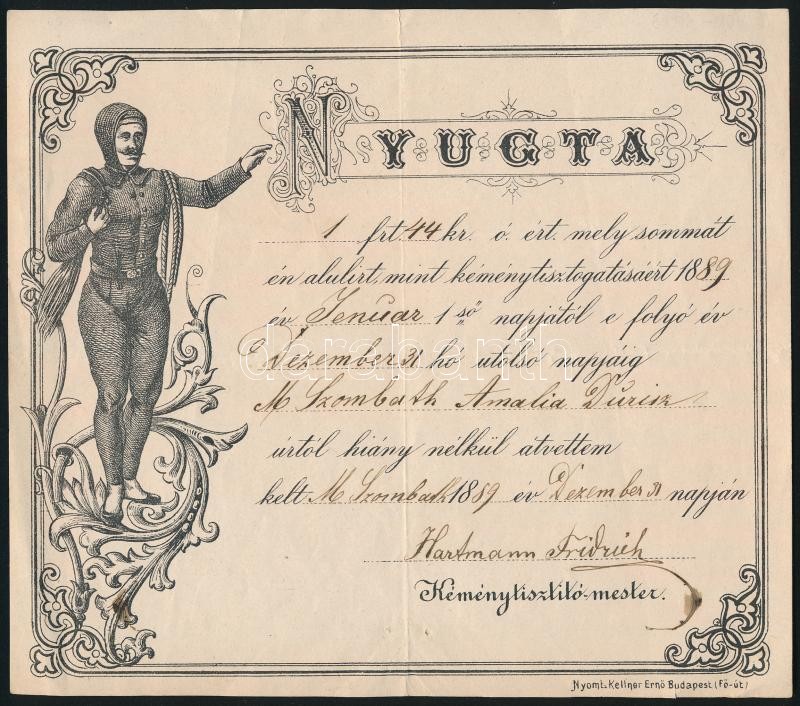 NYUGTA
1 frt. 44 kr. ó. ért. mely sommát
én alulirt, mint kéménytisztogatásáért 1889
év Jenuar 1 ső napjától e folyó év
Dezember 31 hó utolsó napjáig
M Szombath Amalia Durisz
úrtól hiány nélkül atvettem
kelt M Szombath 1889 év Dezember 31 napján
Hartmann Fridrich
Kéménytisztitó-mester.
Nyomt. Kellner Ernő Budapest (Fő-út)
darabanth